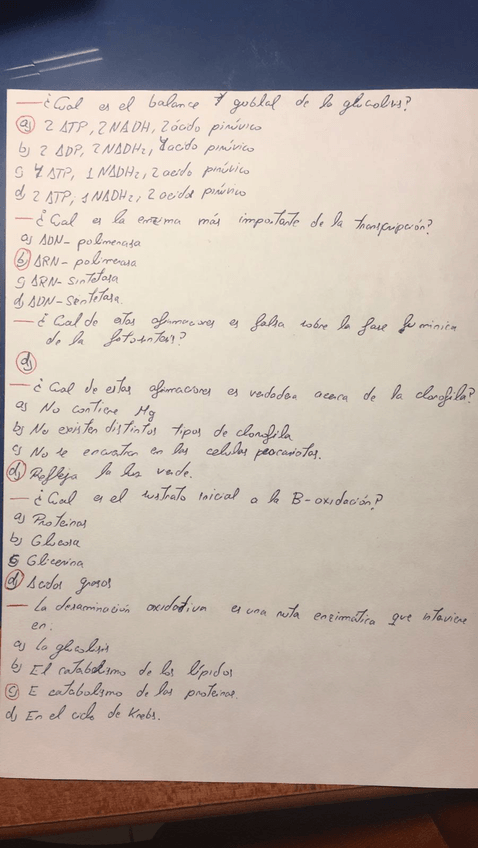 — ¿Cual es el balance goblal de la glucolisis?
a) 2 ATP, 2 NADH, 2 ácido pirúvico
b) 2 ADP, 2 NADH2, 1 acido pirúvico
c) 4 ATP, 1 NADH2, 2 acido pirúvico
d) 2 ATP, 1 NADH2, 2 acidos pirúvico
— ¿Cual es la enzima más importante de la transcripción?
a) ADN-polimerasa
b) ARN-polimerasa
c) ARN-sintetasa
d) ADN-sentetasa.
— ¿Cual de estas afirmaciones es falsa sobre la fase luminica
de la fotosintesis?
d)
— ¿Cual de estas afirmaciones es verdadera acerca de la clorofila?
a) No contiene Mg
b) No existen distintos tipos de clorofila
c) No se encuentran en las celulas procariotas.
d) Refleja la luz verde.
— ¿Cual es el sustrato inicial a la B-oxidación?
a) Proteinas
b) Glucosa
c) Glicerina
d) Acidos grasos
— La desaminación oxidativa es una ruta enzimática que interviene
en.
a) La glucolisis
b) El catabolismo de los lípidos
c) E catabolismo de las proteinas.
d) En el ciclo de Krebs.